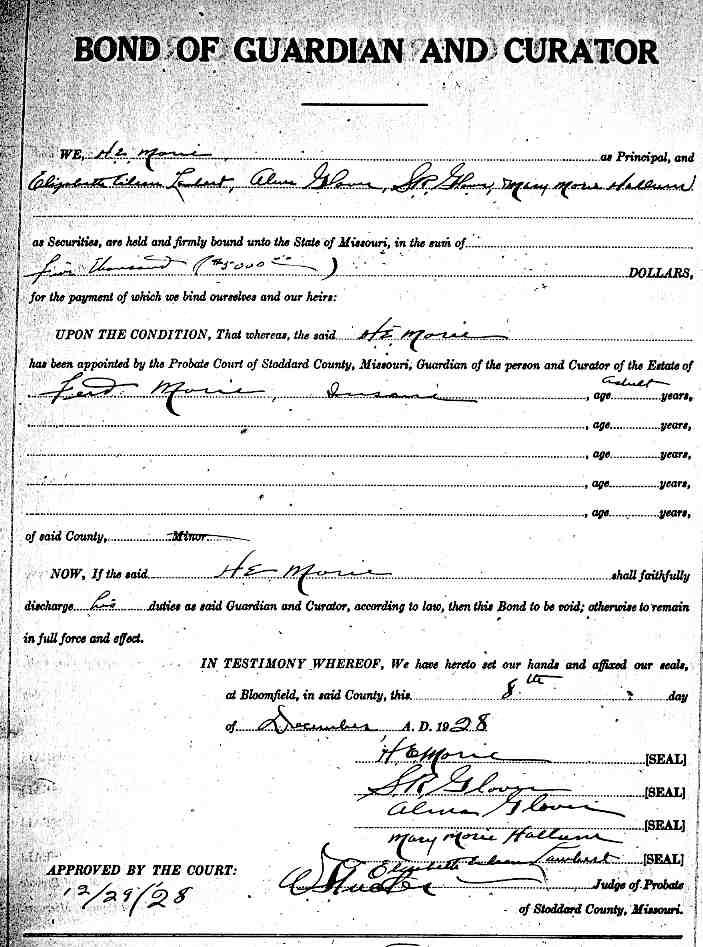 BOND OF GUARDIAN AND CURATOR
WE, H E Morie as Principal, and
Elizabeth Lambert, Alma Glover, S.R. Glover, Mary Morie Hallum
as Securities, are held and firmly bound unto the State of Missouri, in the sum of
five thousand ($5000 ) DOLLARS,
for the payment of which we bind ourselves and our heirs:
UPON THE CONDITION, That whereas, the said H E Morie
has been appointed by the Probate Court of Stoddard County, Missouri, Guardian of the person and Curator of the Estate of
Ferd Morie, Insane, age adult years,
, age years,
, age years,
, age years,
, age years,
of said County, Minor
NOW, If the said H E Morie shall faithfully
discharge his duties as said Guardian and Curator, according to law, then this Bond to be void; otherwise to remain
in full force and effect.
IN TESTIMONY WHEREOF, We have hereto set our hands and affixed our seals,
at Bloomfield, in said County, this 8th day
of December A. D. 1928
H. E Morie [SEAL]
S.R. Glover [SEAL]
Alma Glover [SEAL]
Mary Morie Hallum
Elizabeth Lambert [SEAL]
APPROVED BY THE COURT:
12/29/28
Judge of Probate
of Stoddard County, Missouri.